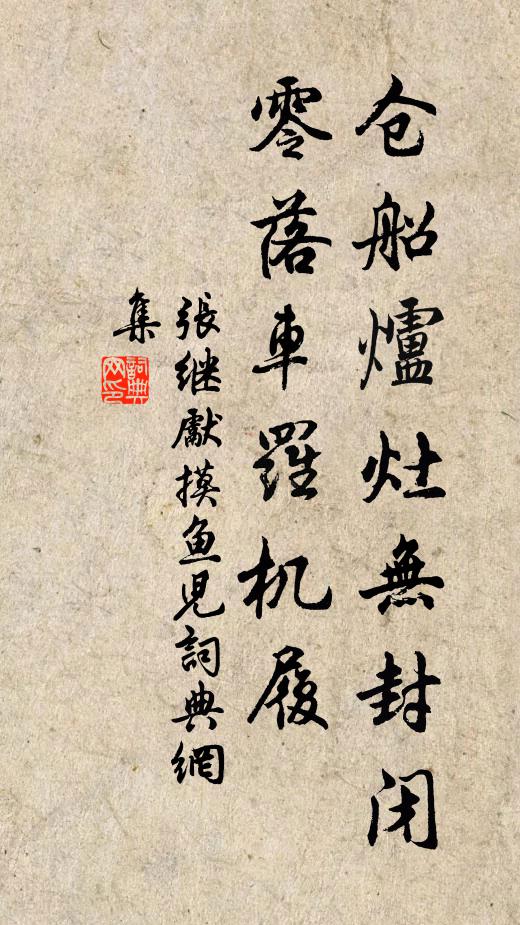 仓船爐灶無封闭
零落車羅机履
張继獻摸鱼児詞典網
集
詞典网印